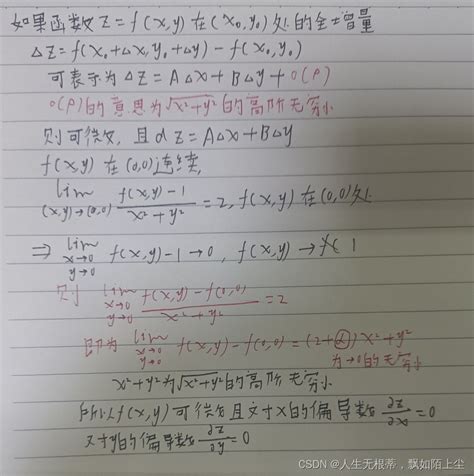 如果函数 z=f(x,y) 在 (x₀,y₀) 处的全增量
△z=f(x₀+△x,y₀+△y)-f(x₀,y₀)
可表示为 △z=A△x+B△y+o(ρ)
o(ρ)的意思为√x²+y²的高阶无穷小
则可微, 且dz=A△x+B△y
f(x,y) 在 (0,0)连续,
lim (x,y)→(0,0) f(x,y)-1 / x²+y² =2, f(x,y) 在 (0,0)处
⇒ lim x→0 y→0 f(x,y)-1→0, f(x,y)→ 1
则 lim x→0 y→0 f(x,y)-f(0,0) / x²+y² =2
即为 lim x→0 y→0 f(x,y)-f(0,0)=(2+α)x²+y²
为→0的无穷小
x²+y²为√x²+y²的高阶无穷小
所以f(x,y)可微且对x的偏导数∂z/∂x=0
对y的偏导数∂z/∂y=0
CSDN @人生无根蒂，飘如陌上尘